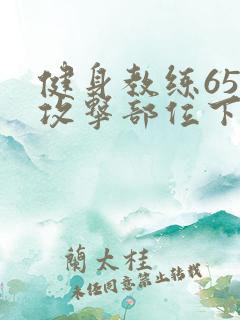 健身教练65
攻擊部位下
蘭太桂
未经同意禁止转载